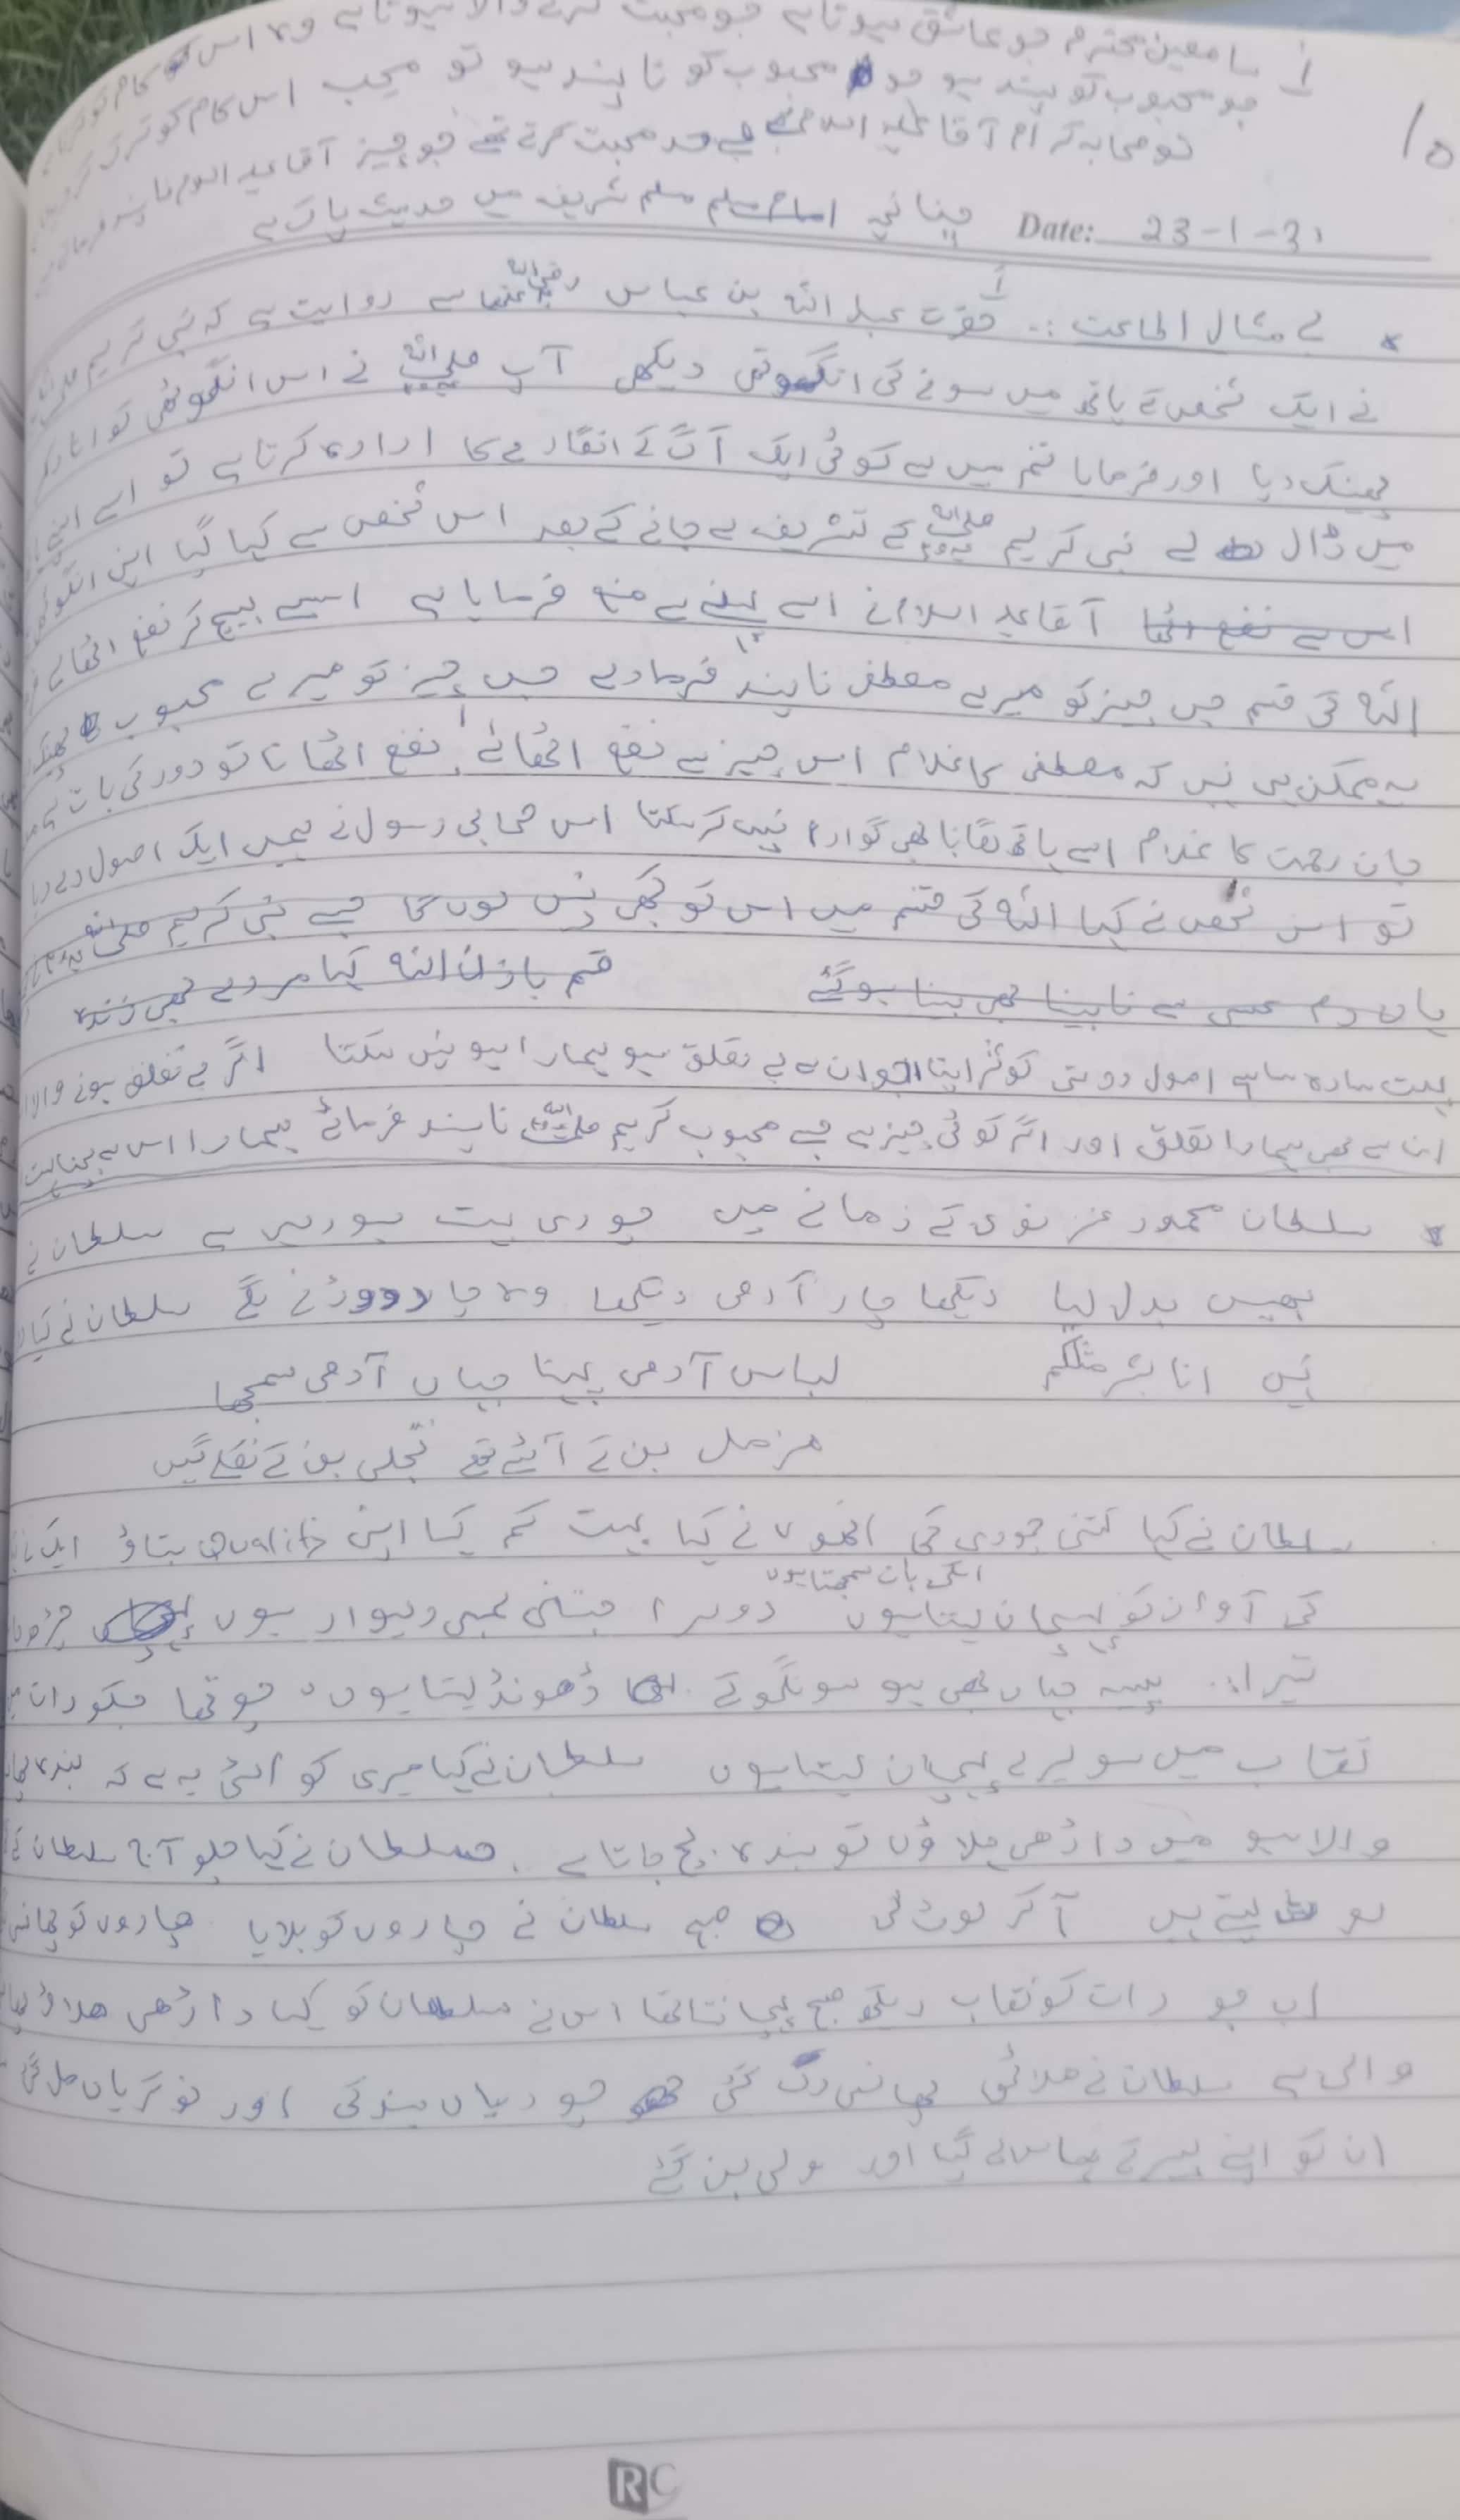 سامعین محترم جو عاشق ہوتا ہے جو محبت کرنے والا ہوتا ہے وہ اس کام کو
جو محبوب کو پسند ہو جو محبوب کو نا پسند ہو تو محب اس کام کو ترک
تو صحابہ کرام آقا علیہ السلام سے بے حد محبت کرتے تھے جو چیز آقا علیہ السلام نا پسند فرماتے
چنانچہ امام مسلم مسلم شریف میں حدیث پاک ہے
10
Date: 23-1-31
* بے مثال اطاعت :. حضرت عبد اللہ بن عباس رضی اللہ عنھما سے روایت ہے کہ نبی کریم صلی اللہ
نے ایک شخص کے ہاتھ میں سونے کی انگوٹھی دیکھی آپ صلی اللہ نے اس انگوٹھی کو اتار کر
پھینک دیا اور فرمایا تم میں سے کوئی ایک آگ کے انگارے کا ارادہ کرتا ہے تو اسے اپنے
میں ڈال لے نبی کریم صلی اللہ علیہ وسلم کے تشریف لے جانے کے بعد اس شخص سے کہا گیا اپنی انگوٹھی
اس سے نفع اٹھا آقا علیہ السلام نے اسے پہننے سے منع فرمایا ہے اسے بیچ کر نفع اٹھالے
اللہ کی قسم جس چیز کو میرے مصطفی نا پسند فرمادے جس چیز کو میرے محبوب پھینک
یہ ممکن ہی نہیں کہ مصطفی کا غلام اس چیز سے نفع اٹھائے نفع اٹھانا تو دور کی بات ہے
جان رحمت کا غلام اسے ہاتھ لگانا بھی گوارا نہیں کر سکتا اس صحابی رسول نے ہمیں ایک اصول دے دیا
تو اس شخص نے کہا اللہ کی قسم میں اس کو کبھی نہیں لوں گا جسے نبی کریم صلی اللہ
یاں دم عیسی سے نابینا بھی بینا ہو گئے قم باذن اللہ کہا مردے بھی زندہ
بہت سادہ سا ہے اصول دوستی کوثر اپنا جو ان سے بے تعلق ہو ہمارا ہو نہیں سکتا اگر بے تعلق ہونے والا
ان سے بھی ہمارا تعلق اور اگر کوئی چیز ہے جسے محبوب کریم صلی اللہ نا پسند فرمائے ہمارا اس سے
* سلطان محمود غزنوی کے زمانے میں چوری بہت ہو رہی ہے سلطان نے
بھیس بدل لیا دیکھا چار آدمی دیکھا وہ چار دوڑنے لگے سلطان نے کہا
نہیں انا بشر مثلکم لباس آدمی پہنا جہاں آدمی سمجھا
مزمل بن کے آئے تھے تجلی بن کے نکلے گیں
سلطان نے کہا کتنی چوری کی انھوں نے کہا بہت کم کہا اپنی Quality بتاؤ ایک نے
کی آواز کو پہچان لیتا ہوں اسکی بات سمجھتا ہوں دوسرا جتنی لمبی دیوار ہوں چڑھ جاتا
تیسرا :. پیسہ جہاں بھی ہو سونگھ کے ڈھونڈ لیتا ہوں، چوتھا جسکو رات
نقاب میں سویرے پہچان لیتا ہوں سلطان نے کہا میری کوالٹی یہ ہے کہ بندہ
والا ہو میں داڑھی ہلاؤں تو بندہ بچ جاتا ہے. سلطان نے کہا چلو آج سلطان کے
لوٹ لیتے ہیں آکر لوٹ لی صبح سلطان نے چاروں کو بلایا چاروں کو پھانسی
اب جو رات کو نقاب دیکھ صبح پہچانتا تھا اس نے سلطان کو کہا داڑھی ہلاؤ
والی ہے سلطان نے ہلائی پھانسی رک گئی چوریاں بند کی اور نوکریاں مل گئی
ان کو اپنے پیر کے پاس لے گیا اور ولی بن گئے
RC